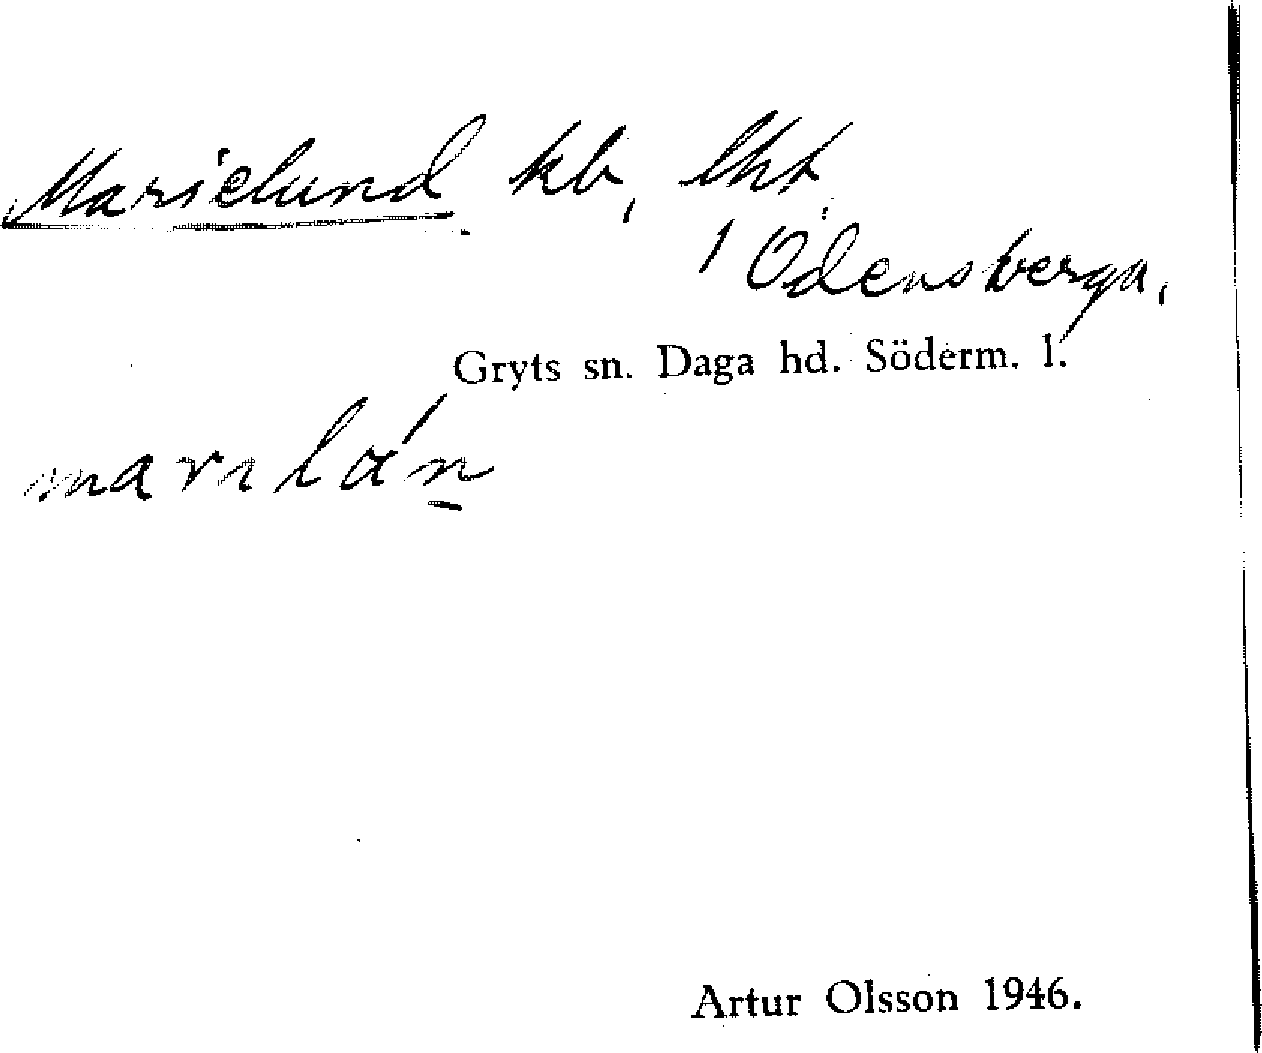 Marielund kb, lht
/ Odensberga,
Gryts sn. Daga hd. Söderm. l.
Artur Olsson 1946.